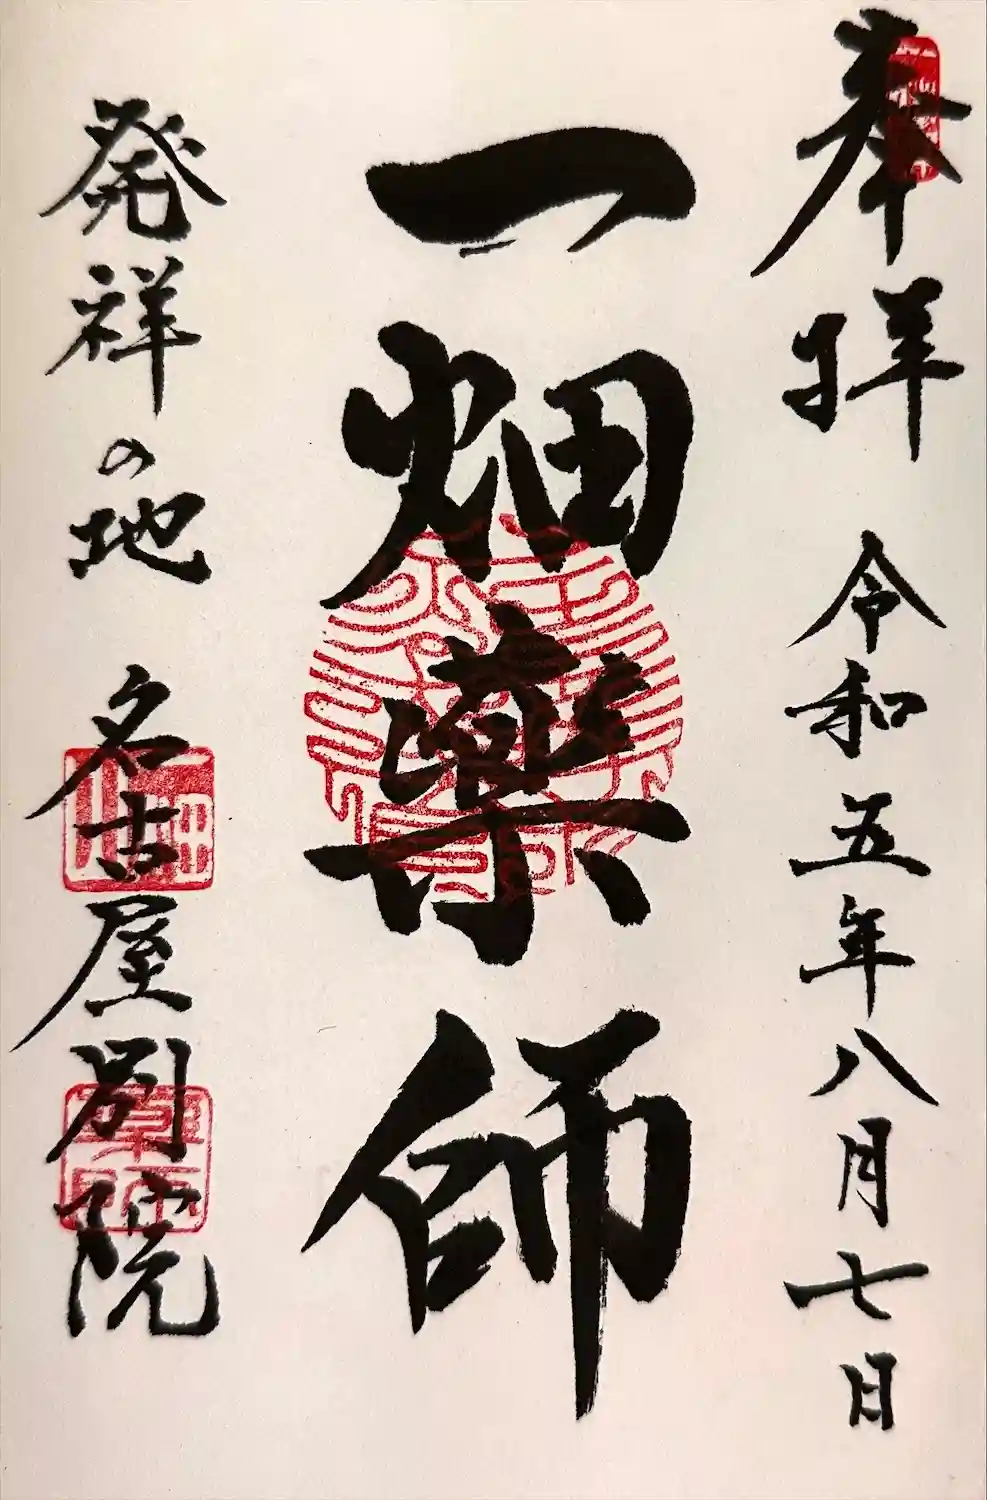 奉拝 令和五年八月七日
一畑薬師
発祥の地 名古屋別院